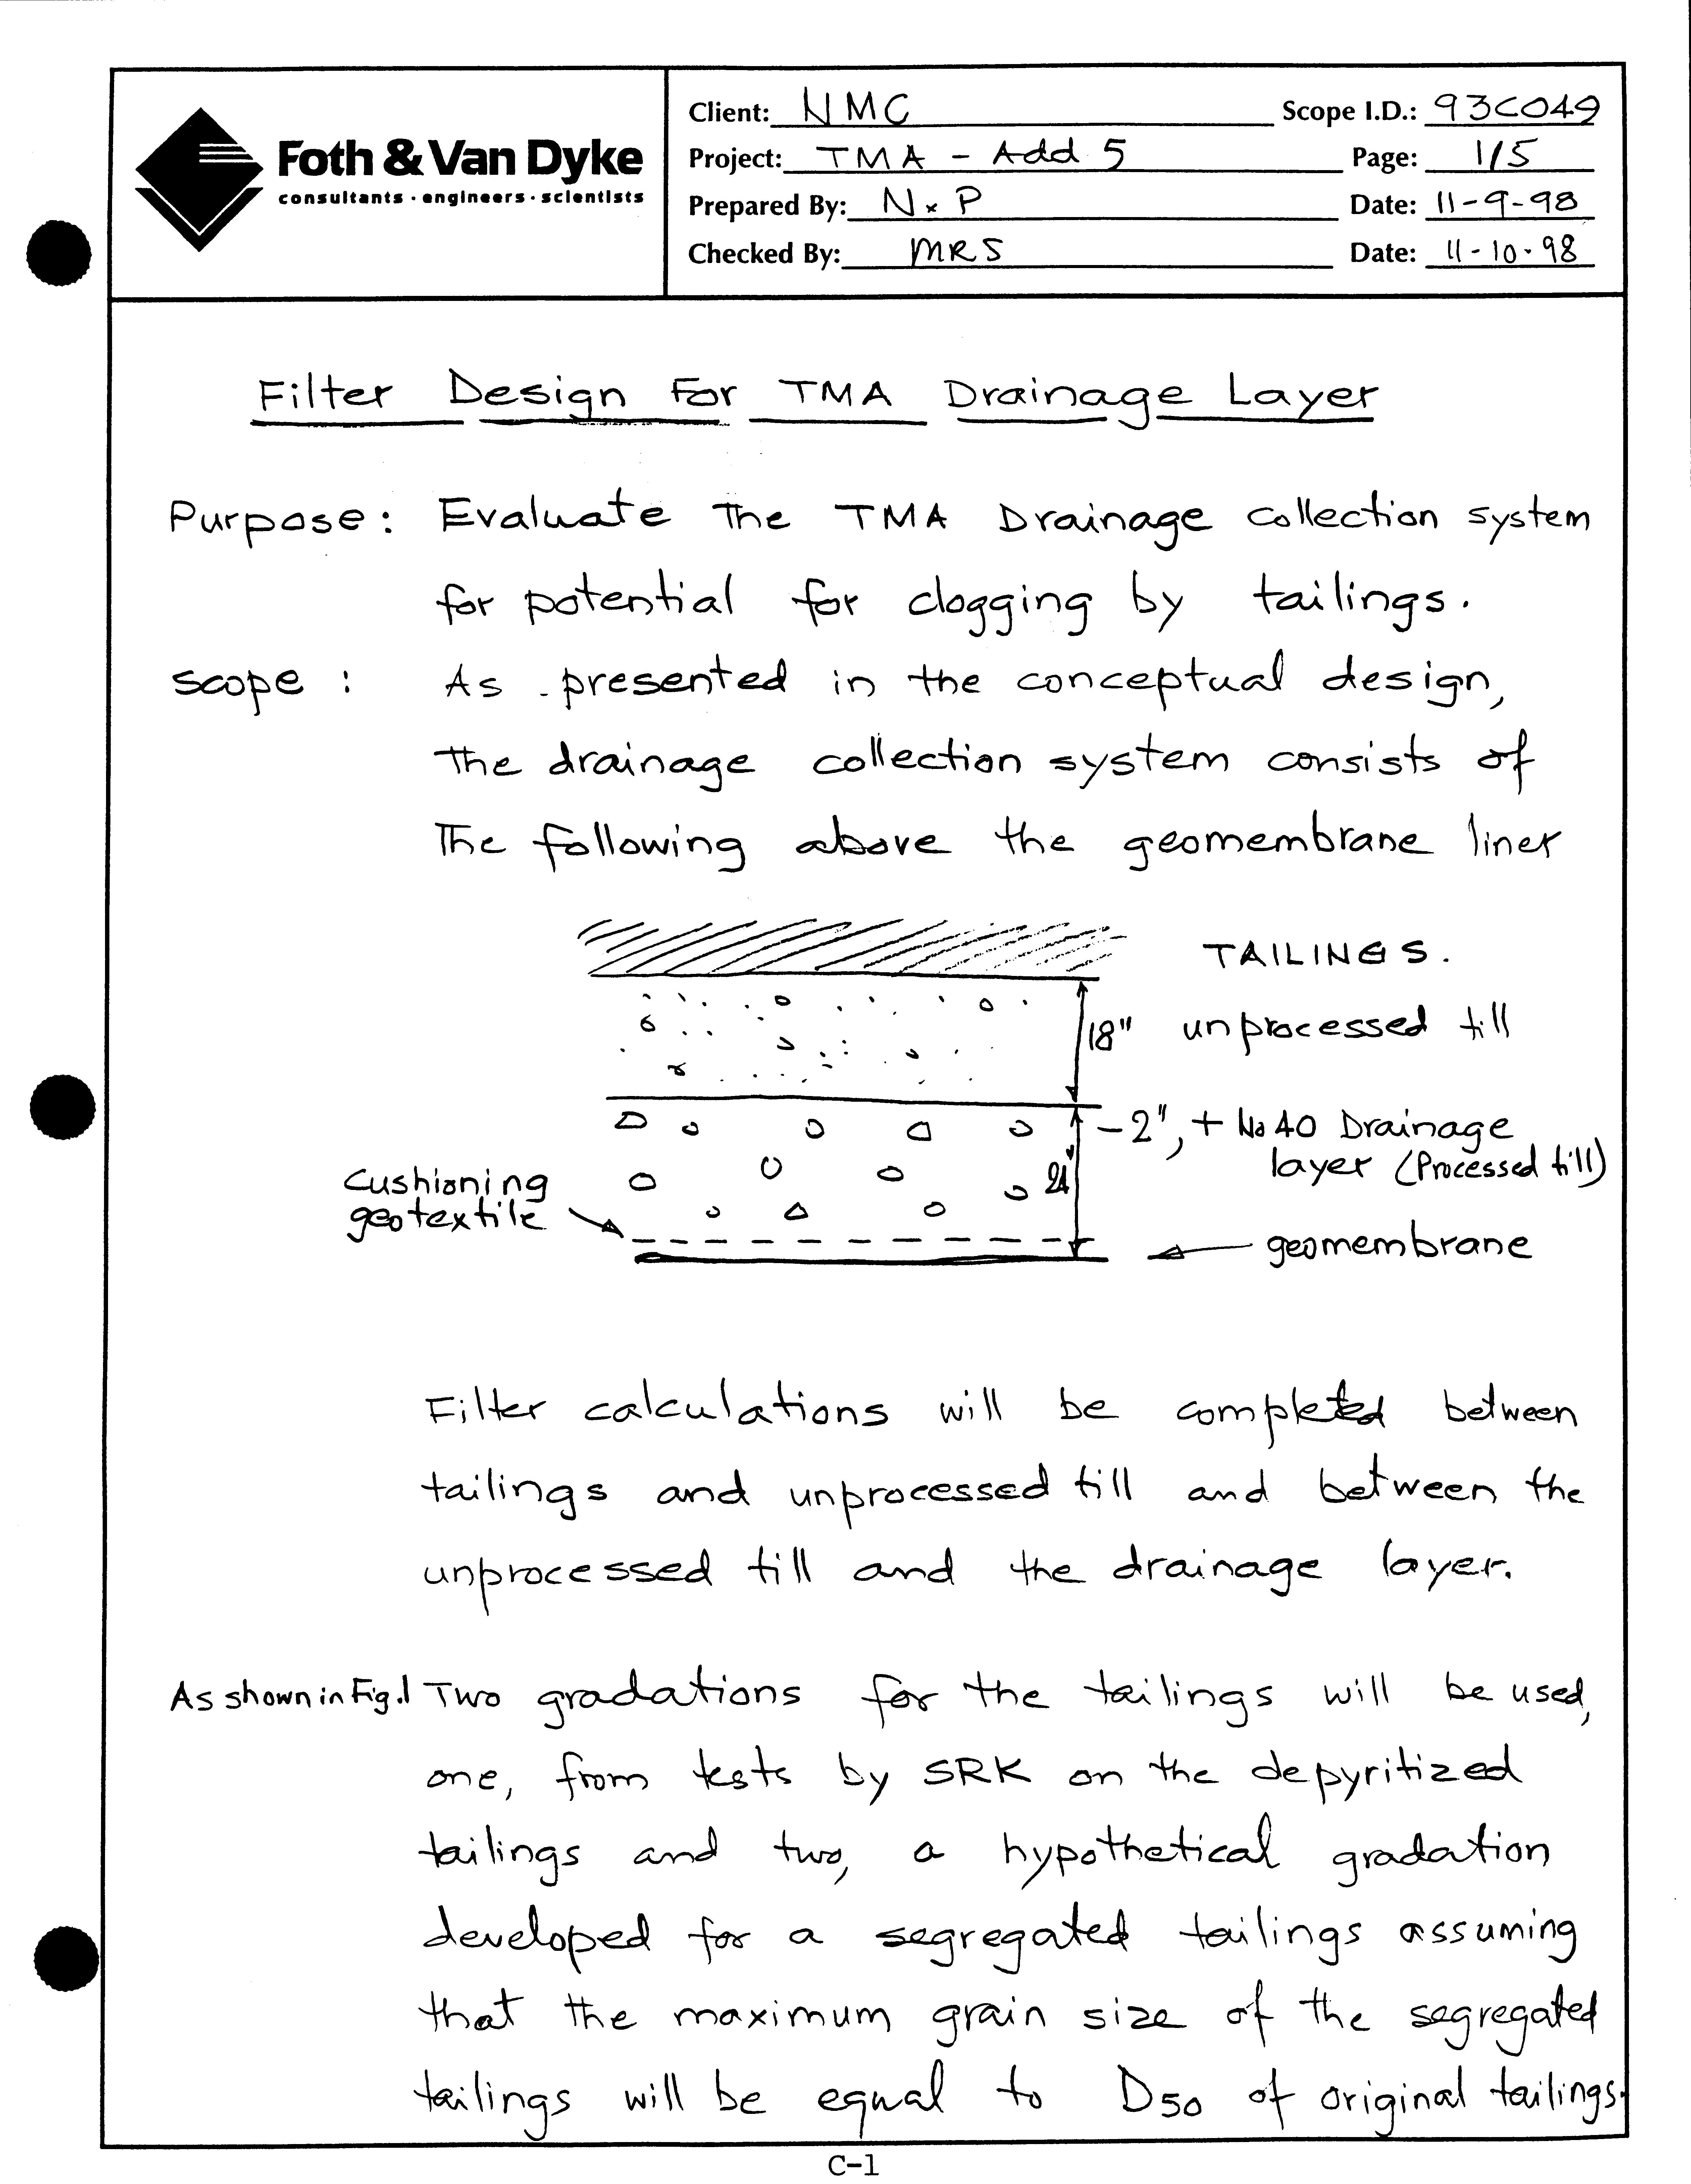 Foth & Van Dyke
consultants · engineers · scientists
Client: NMC
Scope I.D.: 93C049
Project: TMA - Add 5
Page: 1/5
Prepared By: NxP
Date: 11-9-98
Checked By: MRS
Date: 11-10-98
Filter Design For TMA Drainage Layer
Purpose: Evaluate The TMA Drainage collection system
for potential for clogging by tailings.
Scope : As presented in the conceptual design,
The drainage collection system consists of
The following above the geomembrane liner
TAILINGS.
18" unprocessed till
-2", + No 40 Drainage
layer (Processed till)
Cushioning
geotextile
geomembrane
Filter calculations will be completed between
tailings and unprocessed till and between the
unprocessed till and the drainage layer.
As shown in Fig.1 Two gradations for the tailings will be used,
one, from tests by SRK on the depyritized
tailings and two, a hypothetical gradation
developed for a segregated tailings assuming
that the maximum grain size of the segregated
tailings will be equal to D50 of original tailings.
C-1